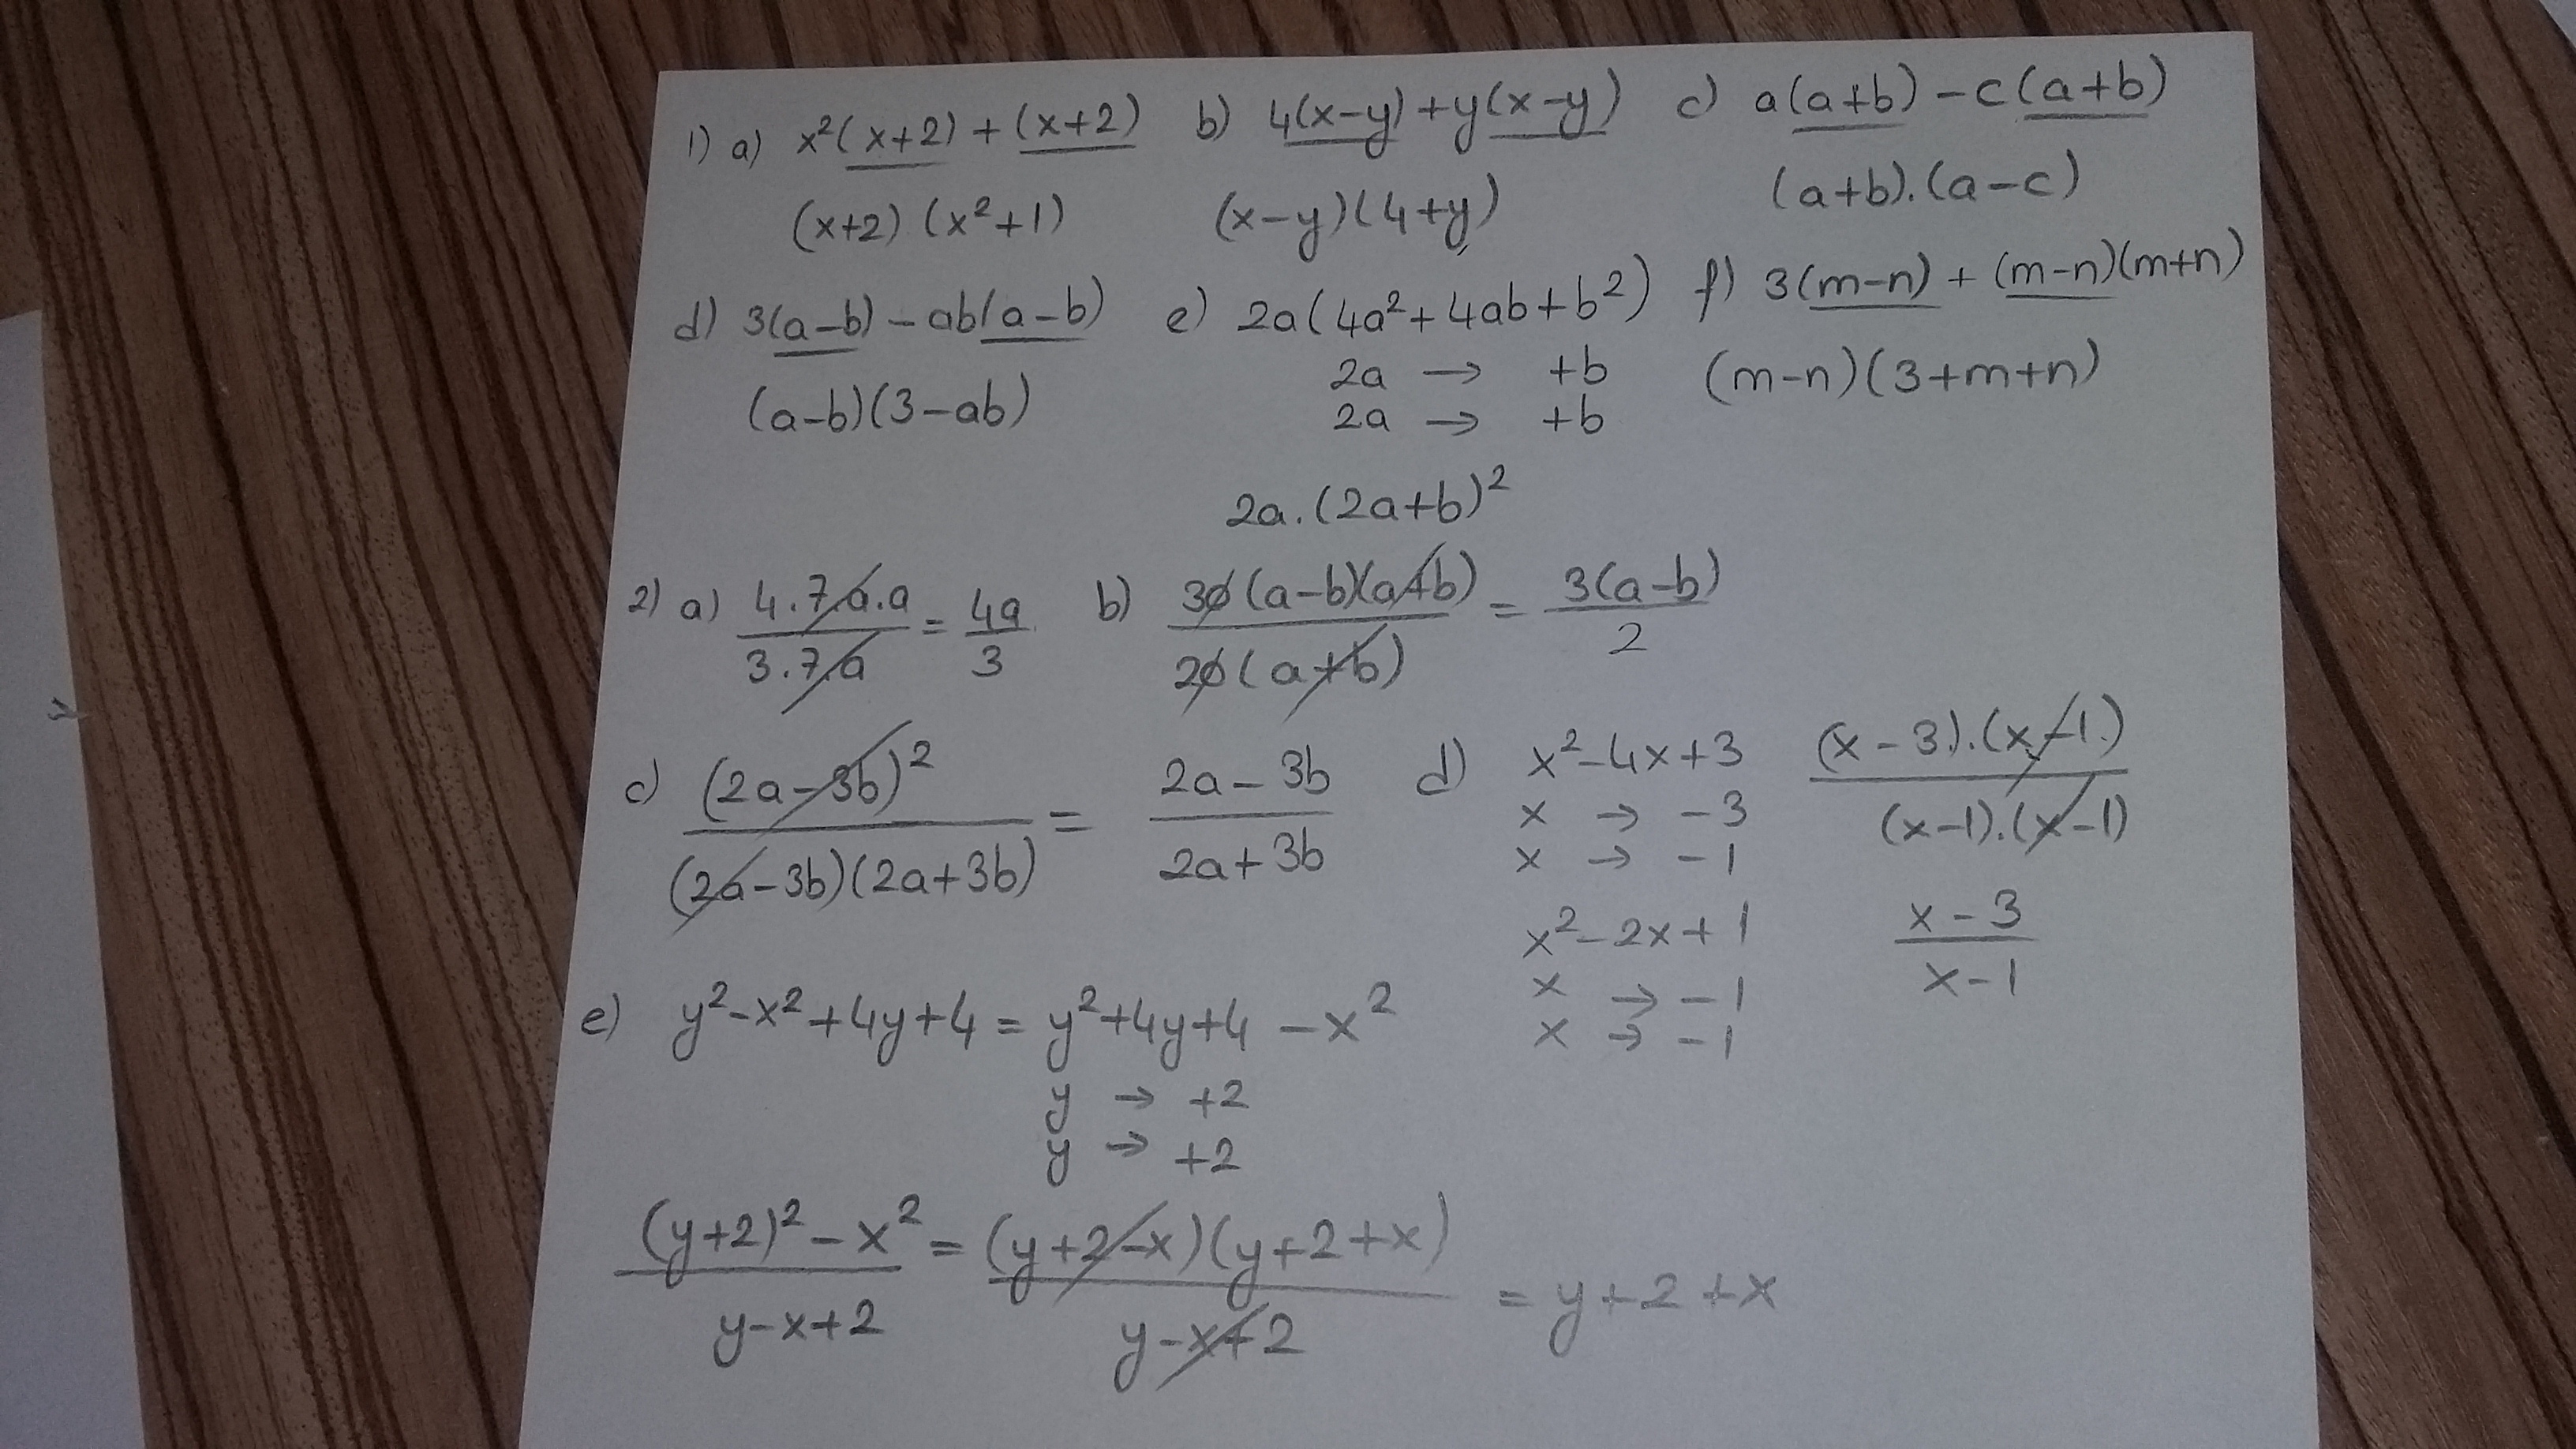 1) a) x²(x+2) + (x+2) b) 4(x-y)+y(x-y) c) a(a+b) - c(a+b)
(x+2) (x²+1) (x-y)(4+y) (a+b).(a-c)
d) 3(a-b) - ab(a-b) e) 2a(4a²+4ab+b²) f) 3(m-n) + (m-n)(m+n)
2a → +b
(a-b)(3-ab) 2a → +b (m-n)(3+m+n)
2a.(2a+b)²
2) a) 4.7a.a / 3.7.a = 4a / 3 b) 30(a-b)(a+b) / 20(a+b) = 3(a-b) / 2
c) (2a-3b)² / (2a-3b)(2a+3b) = 2a-3b / 2a+3b
d) x²-4x+3 (x-3).(x-1) / (x-1).(x-1)
x → -3
x → -1
x²-2x+1 x-3 / x-1
x → -1
x → -1
e) y²-x²+4y+4 = y²+4y+4 -x²
y → +2
y → +2
(y+2)²-x² / y-x+2 = (y+2-x)(y+2+x) / y-x+2 = y+2+x